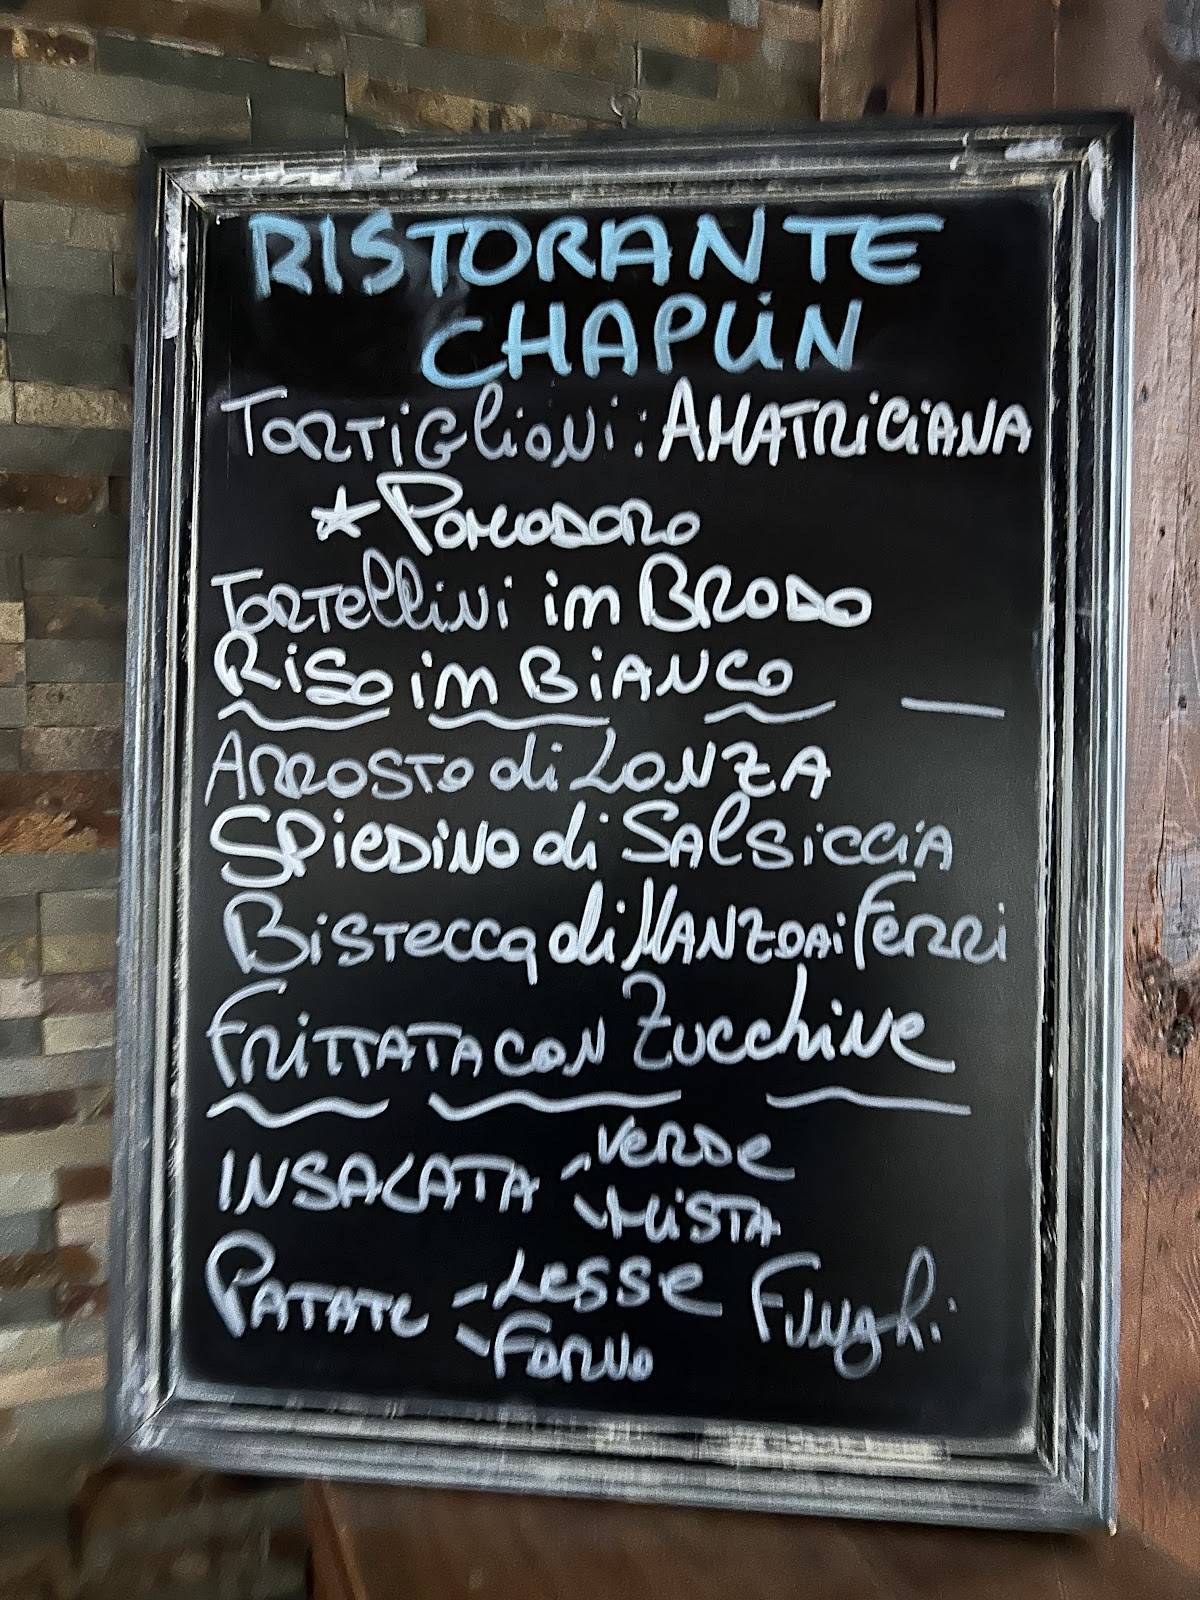 RISTORANTE
CHAPLIN
TORTIGLIONI: AMATRICIANA
* POMODORO
TORTELLINI IN BRODO
RISO IN BIANCO
ARROSTO di LONZA
SPIEDINO di SALSICCIA
BISTECCA di MANZO AI FERRI
FRITTATA CON ZUCCHINE
INSALATA - VERDE
- MISTA
PATATE - LESSE FUNGHI
- FORNO